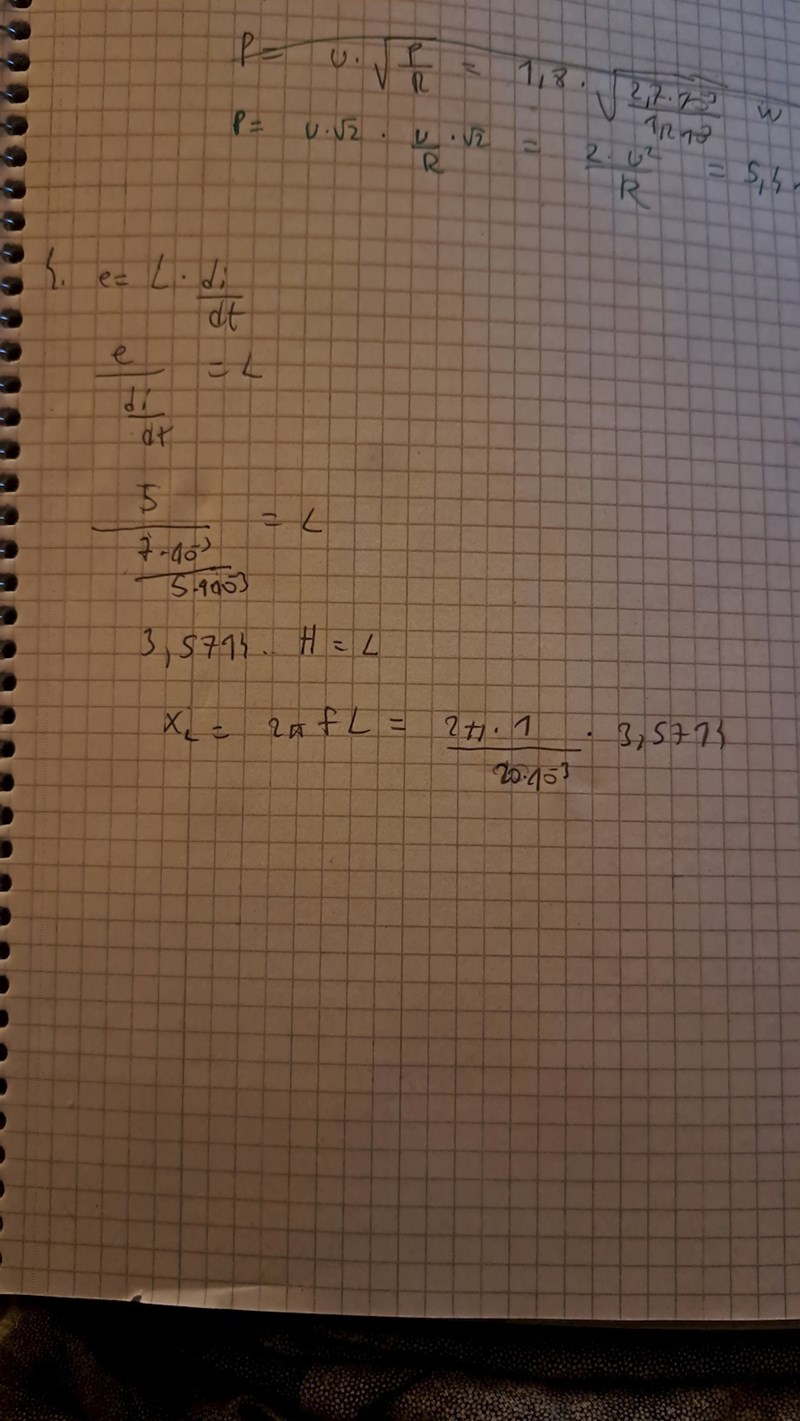 P= U·√(P/R) = 1,8 · √(2,7·10⁻³/1,2·10³) W
P= U·√2 · U/R · √2 = 2·U²/R = 5,4
4. e= L · di/dt
e/(di/dt) = L
5/(7·10⁻³/5·10⁻³) = L
3,5714 H = L
X_L = 2π f L = 2π·1/20·10⁻³ · 3,5714